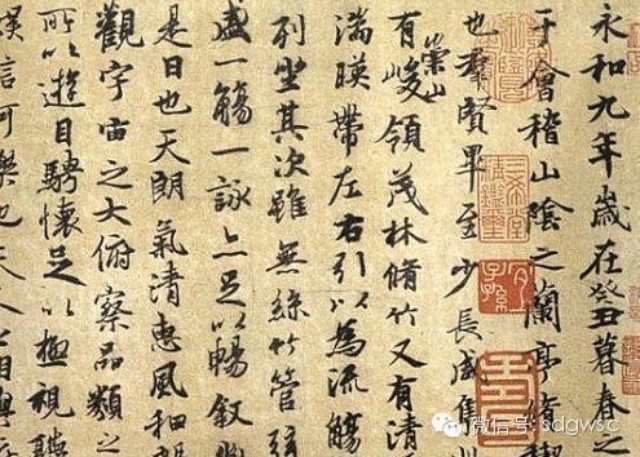 永和九年歲在癸丑暮春之
于會稽山陰之蘭亭脩禊
也羣賢畢至少長咸集
有崇山峻領茂林脩竹又有清
湍暎帶左右引以為流觴
列坐其次雖無絲竹管弦
盛一觴一詠亦足以暢敘幽
是日也天朗氣清惠風和暢
觀宇宙之大俯察品類之
所以遊目騁懷足以極視聽
娛信可樂也夫人之相與
三希堂精鑑璽
宜子孫
微信号: sdgwsc